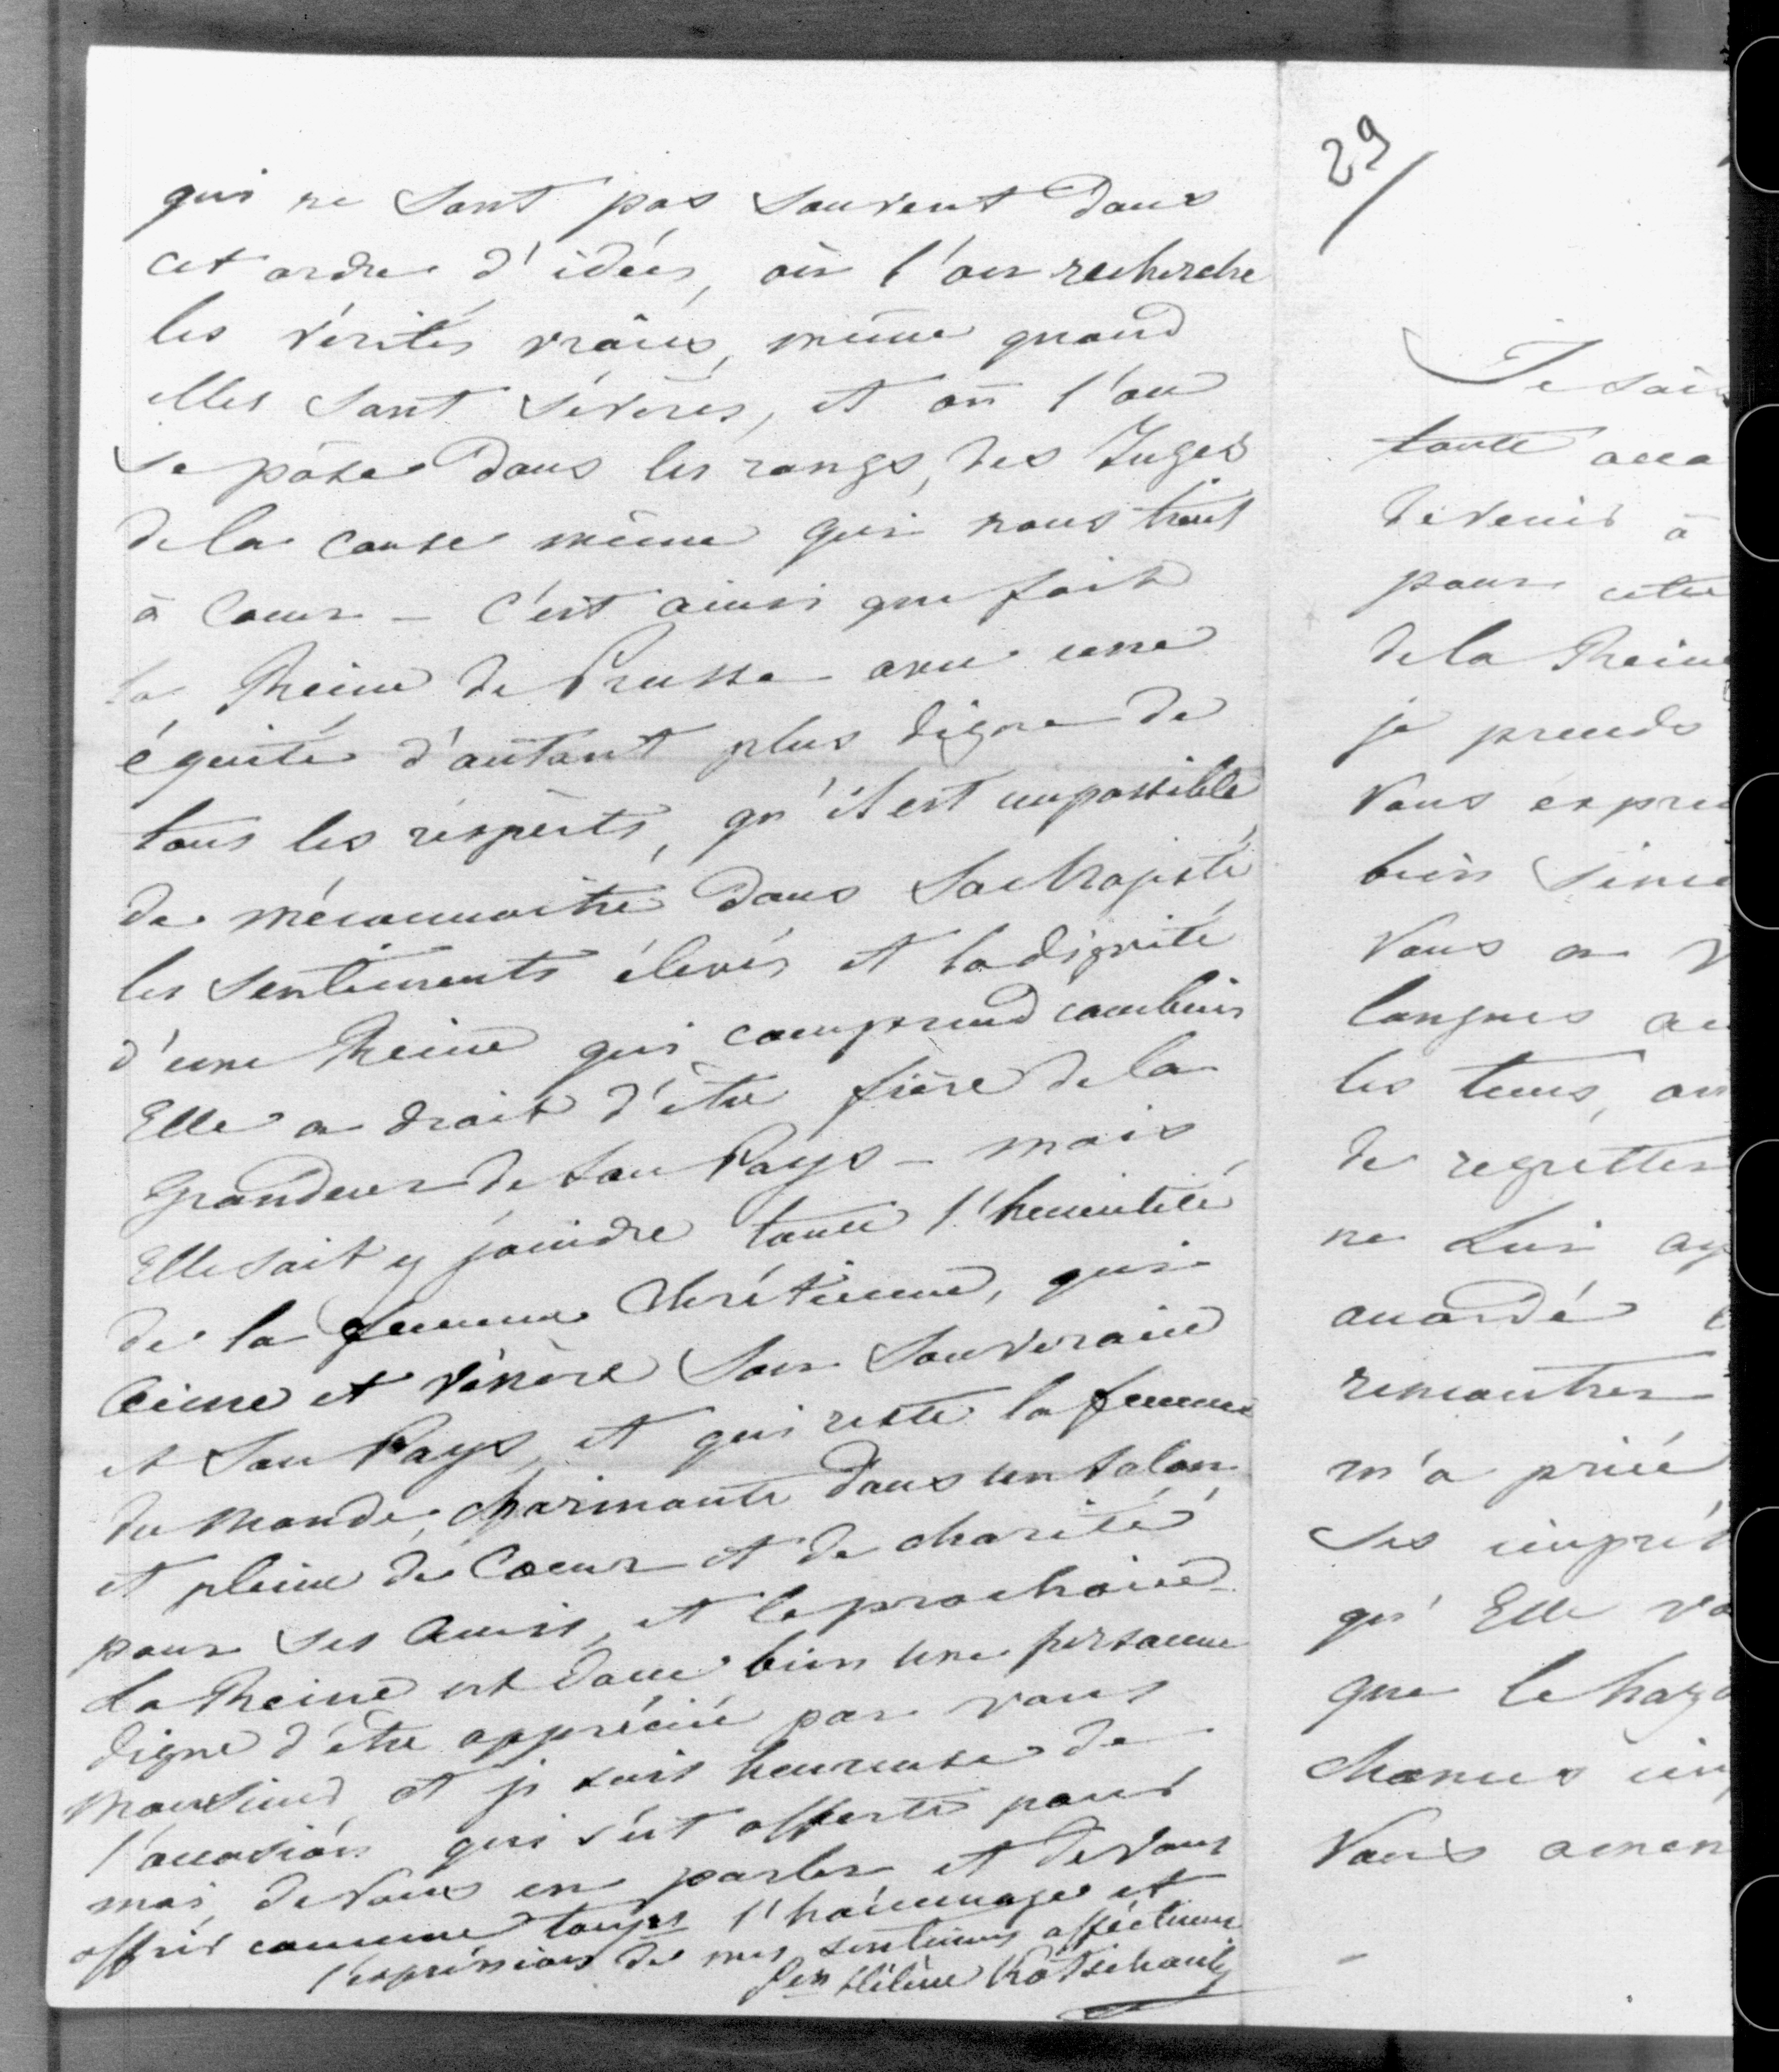 qui ne sont pas souvent dans
cet ordre d'idées, où l'on recherche
les vérités vraies, même quand
elles sont sévères, et où l'on
se pose dans les rangs, des Juges
de la cause même qui nous tient
à Coeur — C'est ainsi que fait
la Reine de Prusse avec une
équité d'autant plus digne de
tous les respects, qu'il est impossible
de méconnaitre dans Sa Majesté
les sentiments élevés et la dignité
d'une Reine qui comprend combien
Elle a droit d'être fière de la
grandeur de son Pays — mais
Elle sait y joindre toute l'humilité
de la femme Chrétienne, qui
Aime et vénère Son Souverain
et Son Pays, et qui reste la femme
du Monde, charmante dans un salon
et pleine de Coeur et de charité
pour ses Amis, et le prochain
La Reine est donc bien une personne
digne d'être appréciée par vous
Monsieur, et je suis heureuse de
l'occasion qui s'est offerte pour
moi, de Vous en parler et de Vous
offrir comme toujrs l'hommage et
l'expression de mes sentimens affectueux
Pcsse Hélène Kotschoubey
29
Je sais
toute occa
devenir à
pour cette
de la Reine
je prends
Vous expri
bien sincè
Vous a v
longues an
les tems, on
de regretter
ne Lui ay
accordé
rencontrer
m'a priée
Ses
qu'Elle vo
que le haza
chances
Vous amen